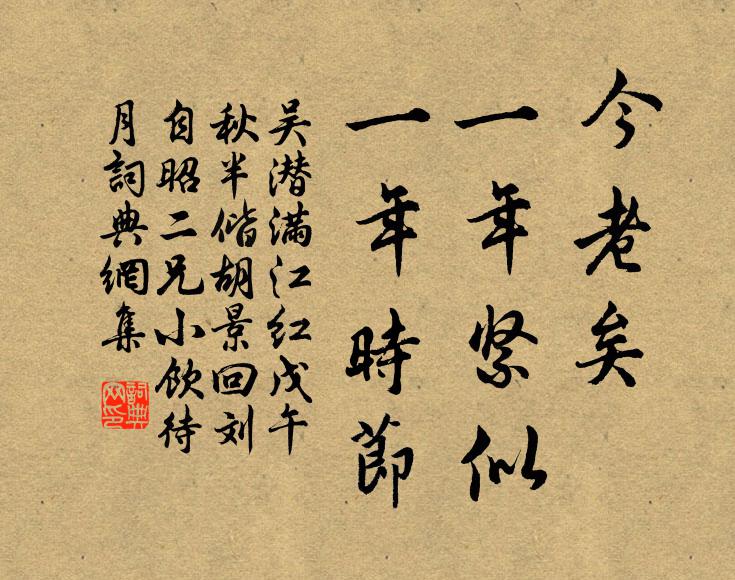 今老矣
一年紧似
一年時節
吴潜满江红戊午
秋半偕胡景回刘
自昭二兄小饮待
月詞典網集
詞典
网印